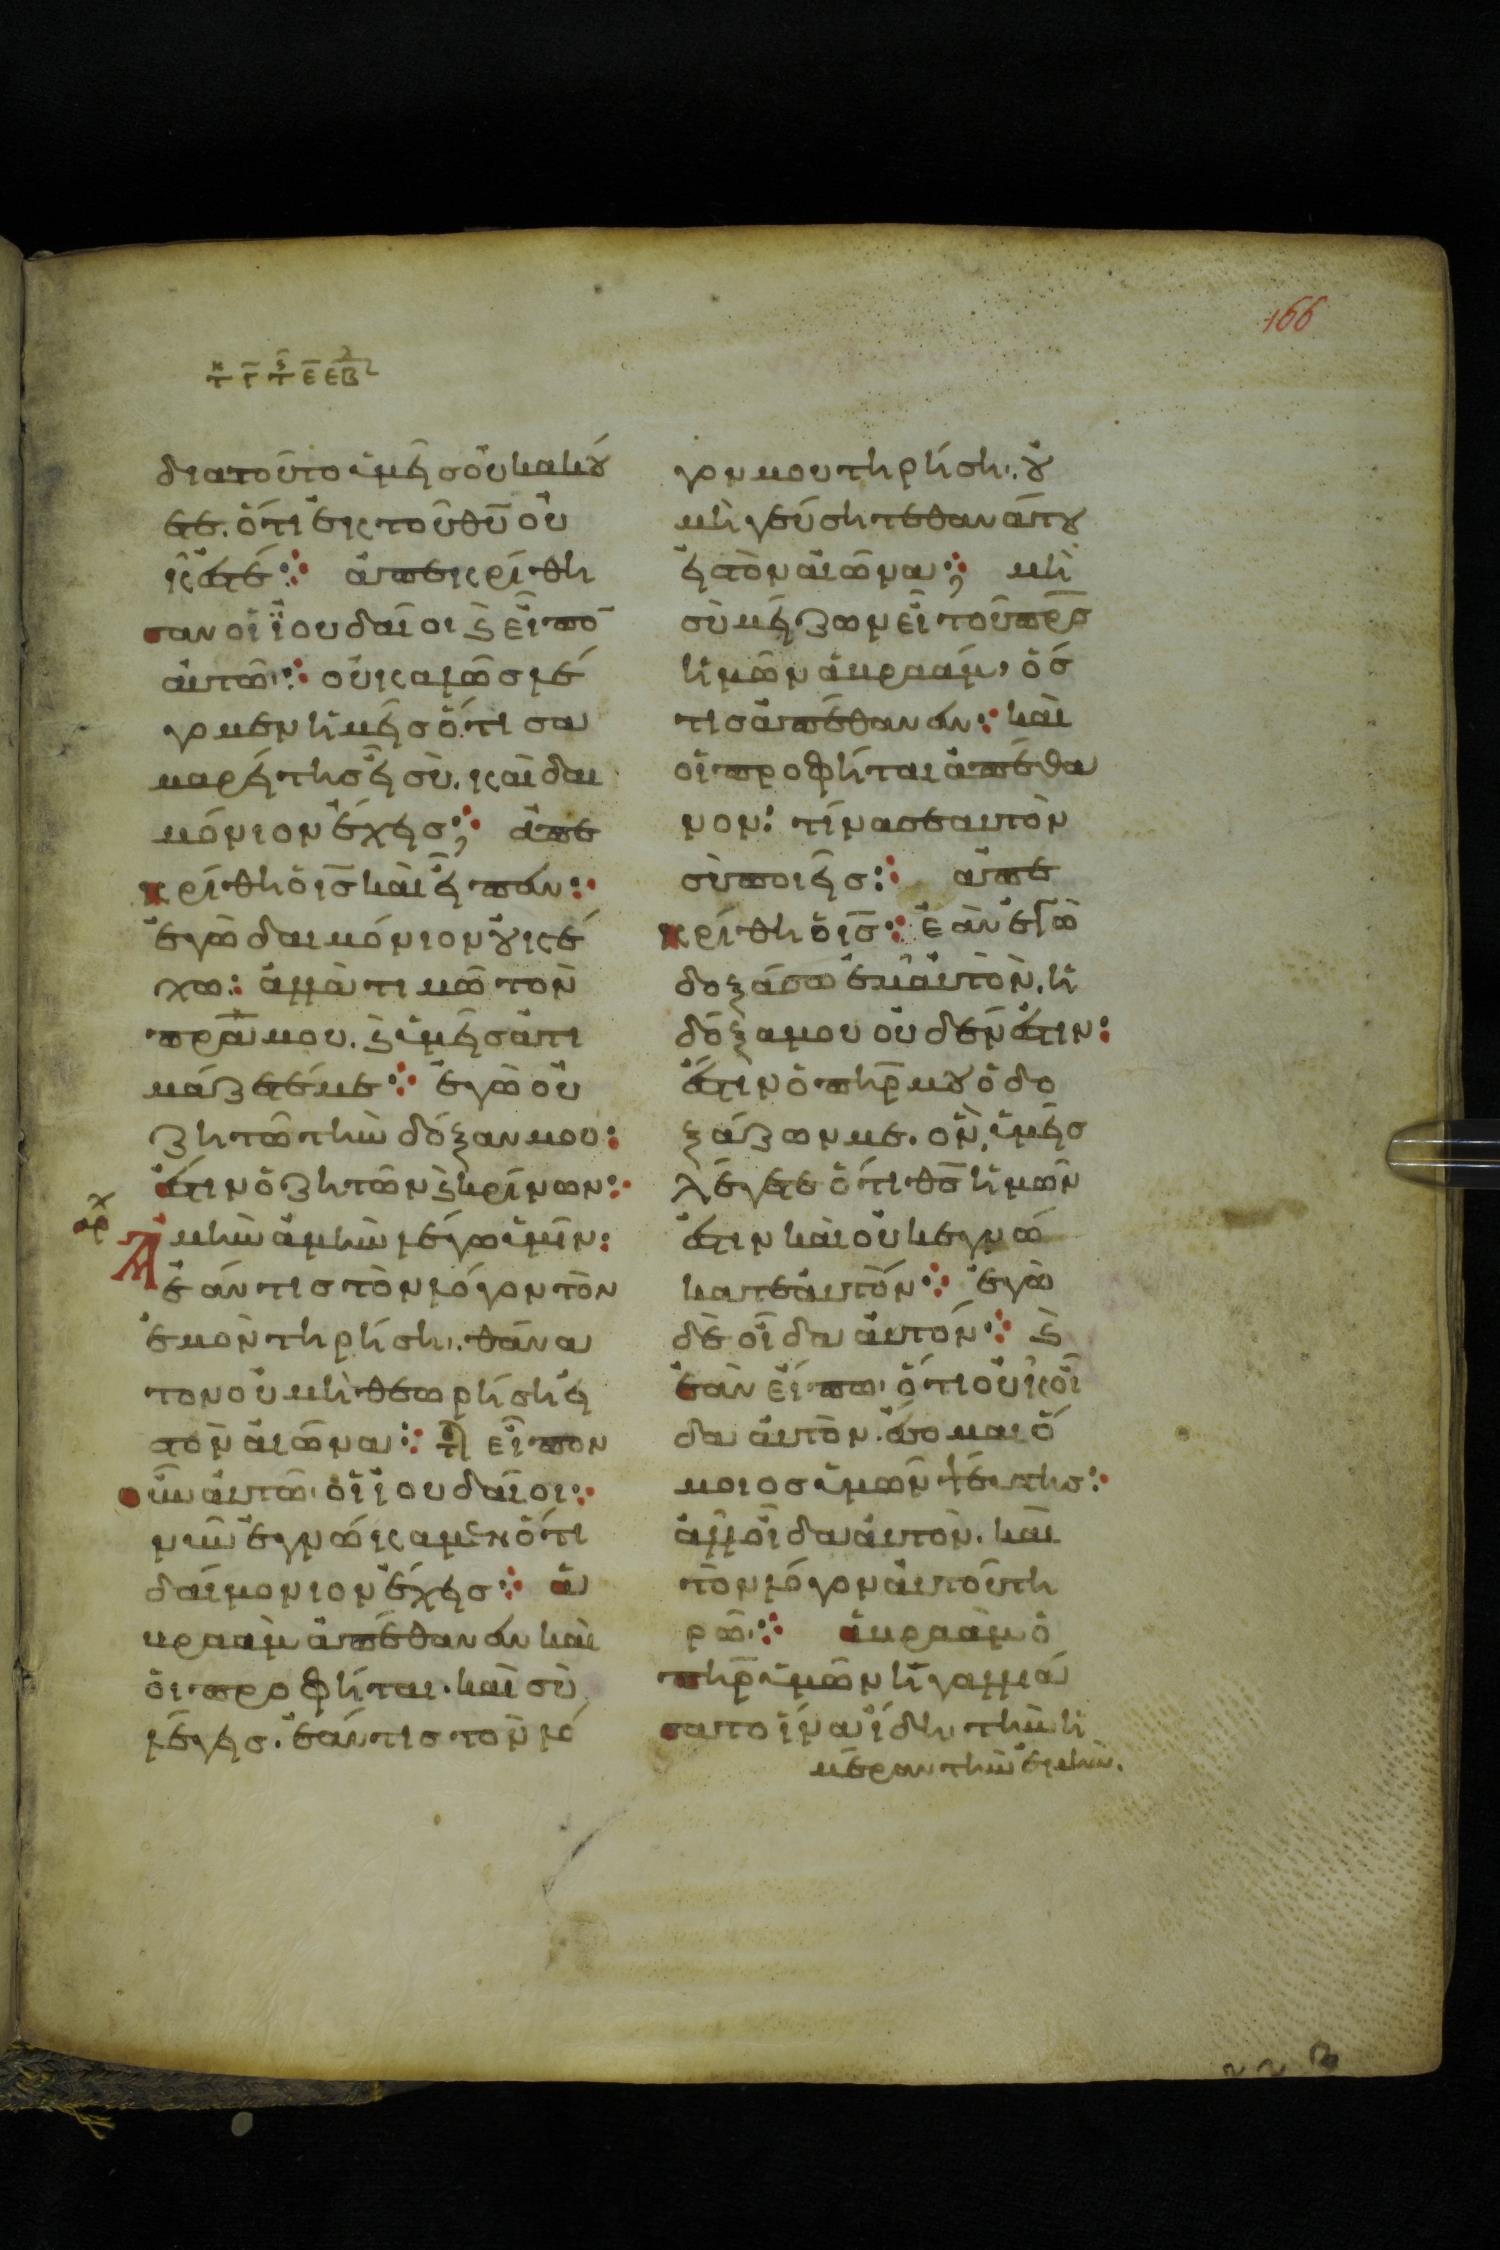 166
διατοῦτο ὑμεῖσ οὐκ ἀκού
ετε. ὅτι ἐκ τοῦ θῦ οὐ
κ ἐστέ ἀπεκρίθη
σαν οἱ ϊουδαῖοι ϗ εἶπο̄
αὐτῶ· οὐ καλῶσ λέ
γομεν ἡμεῖσ ὅτι σα
μαρείτησ εἶ σὺ. καὶ δαι
μόνιον ἔχεισ; ἀπε
κρίθη ὁ ισ̄ καὶ εἶπεν:
ἐγὼ δαιμόνιον οὐκ ἔ
χω: ἀλλὰ τιμῶ τὸν
πρ̄α μου. ϗ ὑμεῖσ ἀτι
μάζετέ με ἐγὼ οὐ
ζητῶ τὴν δόξαν μου:
ἔστιν ὁ ζητῶν ϗ κρίνων:
αρχ
Ἀμὴν ἀμὴν λέγω ὑμῖν:
ἐάν τισ τὸν λόγον τὸν
ἐμὸν τηρήση. θάνα
τον οὐ μὴ θεωρήση εἰ
στὸν αἰῶνα εἶπον
οὖν αὐτῶ οἱ ἰουδαῖοι:
νῦν ἐγνώκαμεν ὅτι
δαίμονιον ἔχεισ ἀ
βραὰμ ἀπέθανεν καὶ
οἱ προφῆται. καὶ σὺ
λέγεισ. ἐάν τισ τὸν λό
γον μου τηρήση. οὐ
μὴ γεύσητε θανάτου
εἰστὸν αἰῶνα; μὴ
σὺ μείζων εἶ τοῦ πρ̄σ
ἡμῶν ἀβραάμ, ὅσ
τισ ἀπέθανεν: καὶ
οἱ προφῆται ἀπέθα
νον: τίνα σεαυτὸν
σὺ ποιεῖσ: ἀπε
κρίθη ὁ ισ̄ ἐὰν ἐγὼ
δοξάσω ἐμαυτὸν. ἡ
δόξα μου οὐδέν ἐστιν:
ἔστιν ὁ πηρ̄ μου ὁ δο
ξάζων με. ὃν ὑμεῖσ
λέγετε ὅτι θσ̄ ἡμῶν
ἐστιν καὶ οὐκ ἐγνώ
κατε αὐτόν ἐγὼ
δὲ οἶδα αὐτόν ϗ
ἐὰν εἴπω ὅτι οὐκ οἶ
δα αὐτὸν. ἔσομαι ὅ
μοιοσ ὑμῶν ψεύστησ:
ἀλλ οἶδα αὐτὸν. καὶ
τὸν λόγον αὐτοῦ τη
ρῶ· ἀβραὰμ ὁ
πηρ̄ ὑμῶν ἠγαλλιά
σατο ἵνα ἴδη τὴν ἡ
μέραν τὴν ἐμὴν.